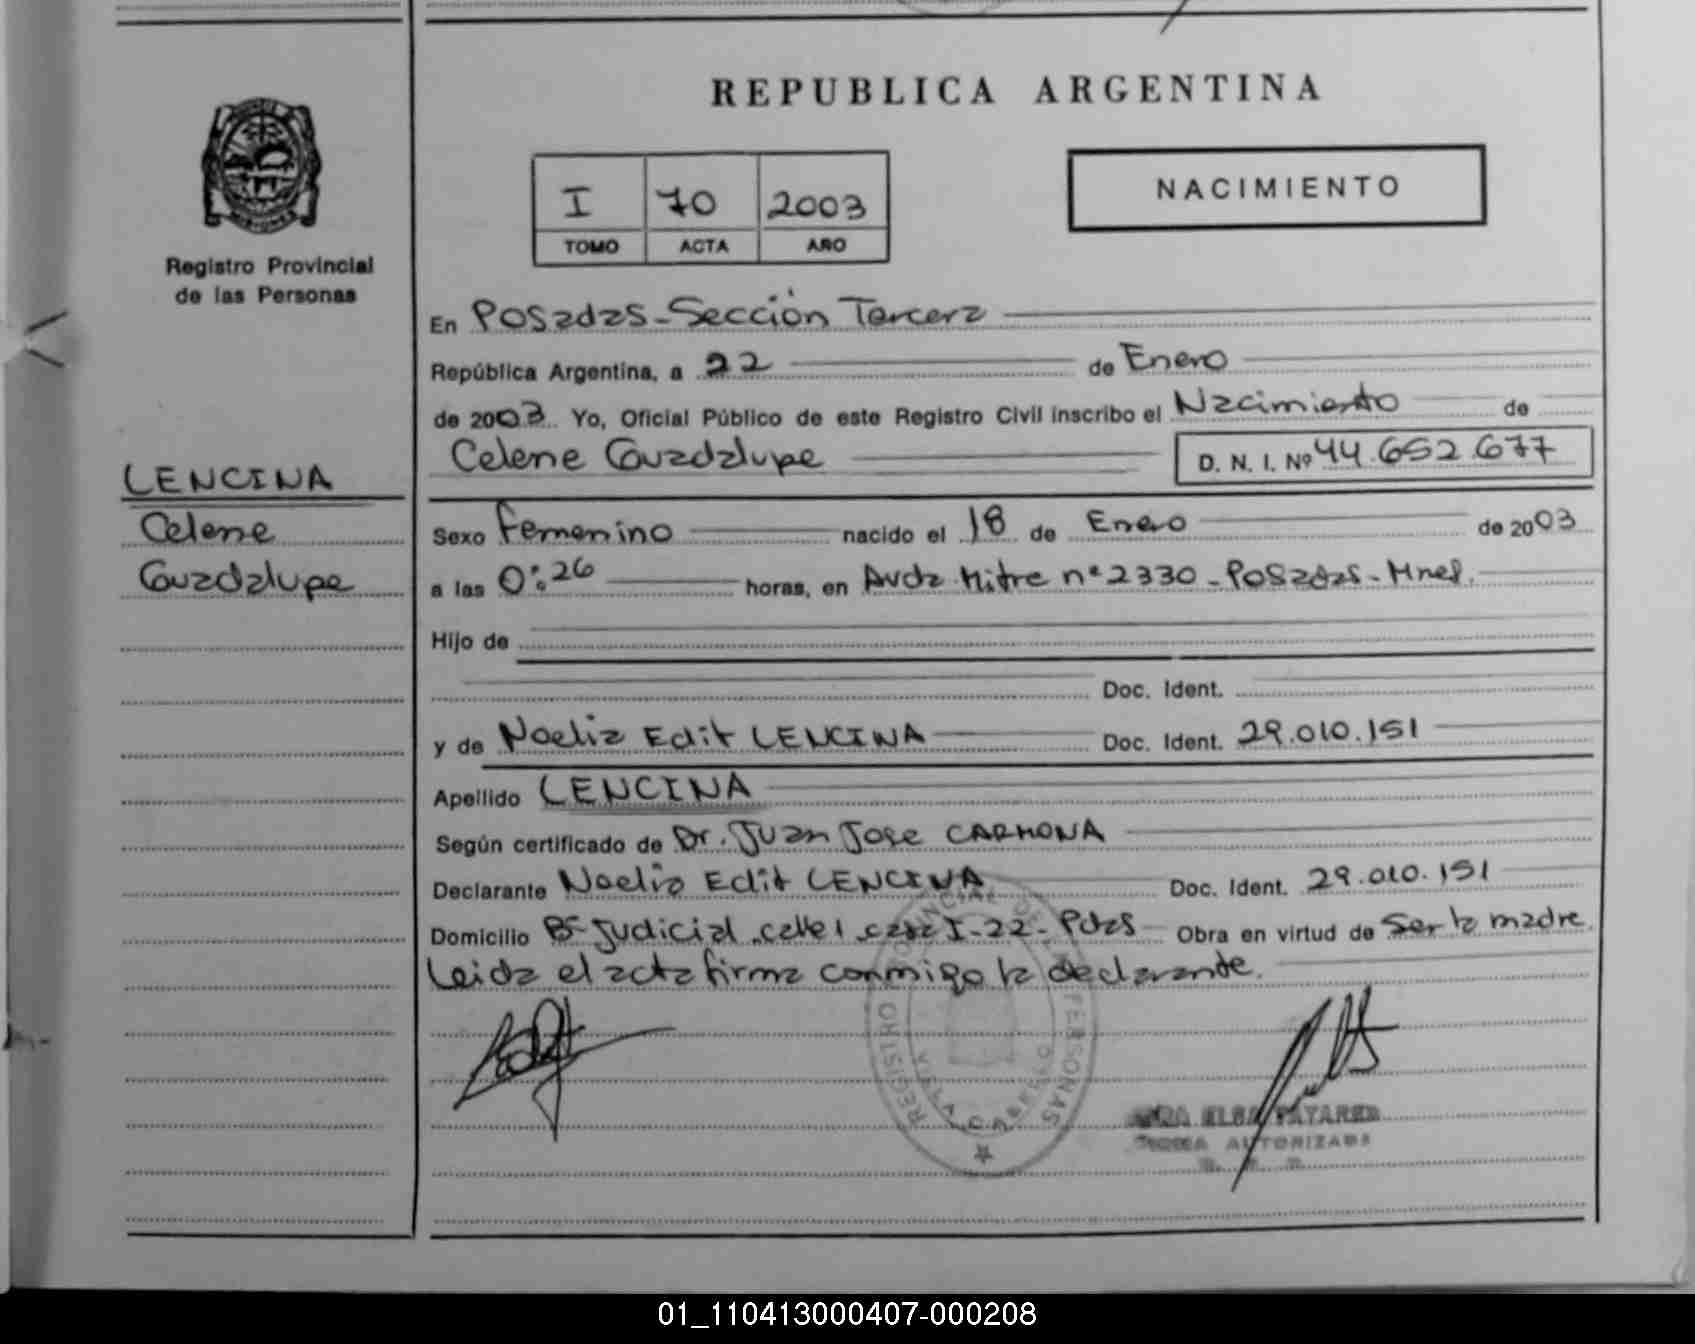 REPUBLICA ARGENTINA
I 70 2003
TOMO ACTA AÑO
NACIMIENTO
MISIONES
Registro Provincial
de las Personas
En Posadas-Sección Tercera
República Argentina, a 22 de Enero
de 2003 Yo, Oficial Público de este Registro Civil inscribo el Nacimiento de
Celene Guadalupe D. N. I. Nº 44.652.677
LENCINA
Celene
Guadalupe
Sexo Femenino nacido el 18 de Enero de 2003
a las 0:26 horas, en Avda Mitre nº 2330 - Posadas - Mnes.
Hijo de
Doc. Ident.
y de Noelia Edit LENCINA Doc. Ident. 29.010.151
Apellido LENCINA
Según certificado de Dr. Juan Jose CARMONA
Declarante Noelia Edit LENCINA Doc. Ident. 29.010.151
Domicilio Bº Judicial calle 1 casa I-22- Pdas Obra en virtud de Ser la madre
Leida el acta firma conmigo la declarante.
REGISTRO PROVINCIAL DE LAS PERSONAS
VILLA CABELLO
ELBA
AUTORIZADA
01_110413000407-000208